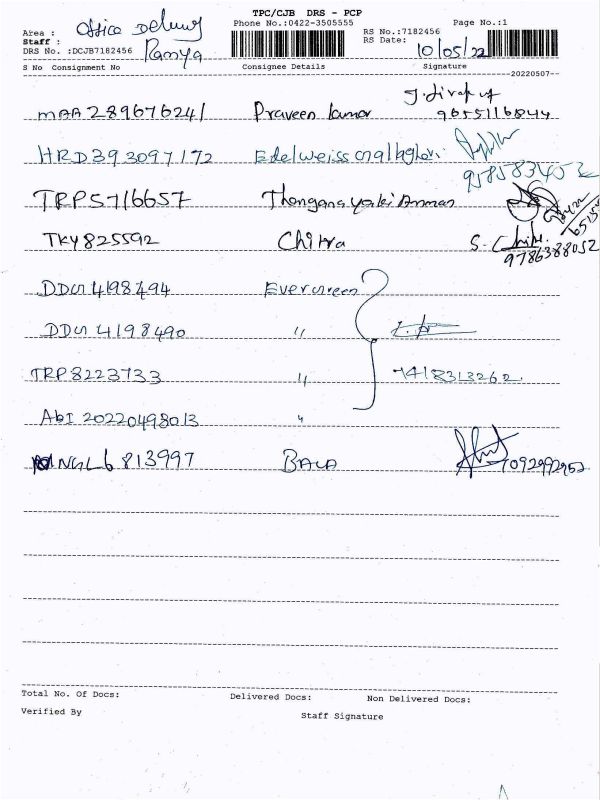 TPC/CJB DRS - PCP
Area : Office Delivery Phone No.:0422-3505555 RS No.:7182456 Page No.:1
Staff : Ramya RS Date: 10/05/22
DRS No. :DCJB7182456
S No Consignment No Consignee Details Signature
20220507
MAA289676241 Praveen kumar 9655116844
HRD393097172 Edelweiss 9585834052
TRP5716657 Thenganayaki Ammas
TKY825592 Chitra S. Chitra 9786388052
DDU4198494 Evergreen
DDU4198490 "
TRP8223733 " 7418313262
ABI 20220498013 "
NGL6813997 BALA 7092992952
Total No. Of Docs: Delivered Docs: Non Delivered Docs:
Verified By Staff Signature